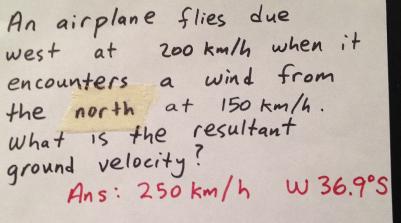 An airplane flies due
west at 200 km/h when it
encounters a wind from
the north at 150 km/h.
What is the resultant
ground velocity?
Ans: 250 km/h W 36.9°S